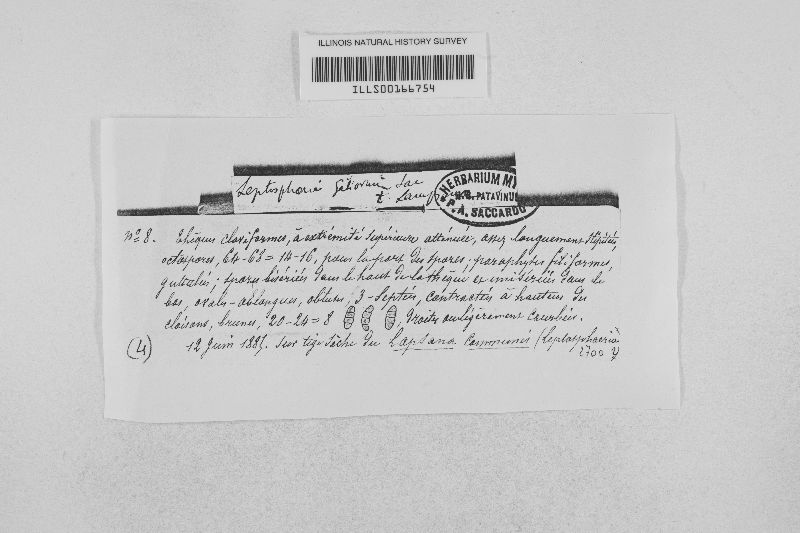 ILLINOIS NATURAL HISTORY SURVEY
ILLS00166754
Leptosphaeria galiorum Sac
f. Lamps
HERBARIUM MY
H.B. PATAVINUM
P.A. SACCARDO
No 8. Thèques claviformes, à extrémité supérieure atténuée, assez longuement stipitées
octospores, 64-68 = 14-16, pour la part des spores; paraphyses filiformes,
guttulées; spores bisériées dans le haut de la thèque et unisériées dans le
bas, ovales-oblongues, obtuses, 3-septées, contractées à hauteur des
cloisons, brunes, 20-24 = 8, droites ou légèrement courbées.
(4) 12 Juin 1887. Sur tige sèche du Lapsana communis (Leptosphaeria
2700 y